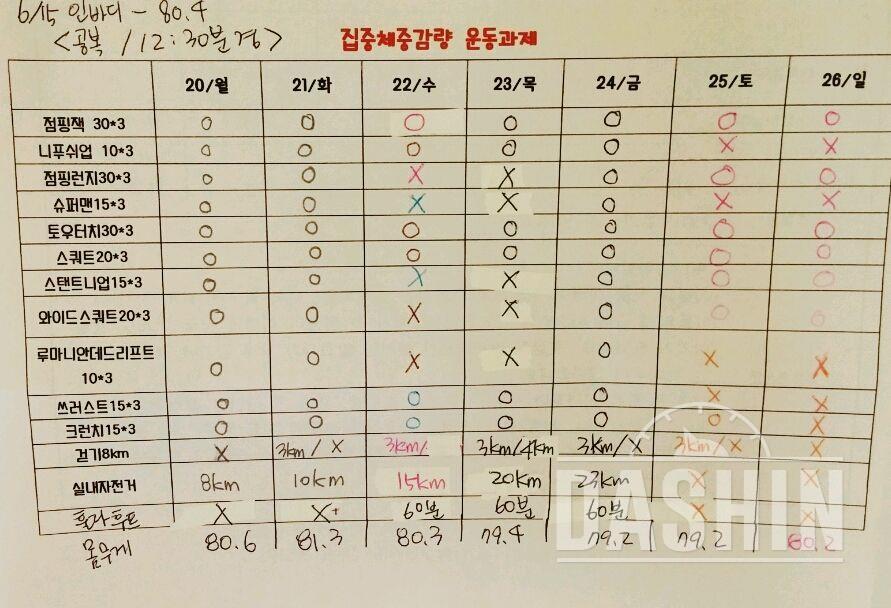 6/15 인바디 - 80.4
<공복 / 12:30분경>
집중체중감량 운동과제
20/월 21/화 22/수 23/목 24/금 25/토 26/일
점핑잭 30*3 O O O O O O O
니푸쉬업 10*3 O O O O O X X
점핑런지30*3 O O X X O O O
슈퍼맨15*3 O O X X O X X
토우터치30*3 O O O O O O O
스쿼트20*3 O O O O O O O
스탠트니업15*3 O O X X O O O
와이드스쿼트20*3 O O X X O O O
루마니안데드리프트
10*3 O O X X O X X
쓰러스트15*3 O O O O O X X
크런치15*3 O O O O O O X
걷기8km X 3km / X 3km/ 3km/4km 3km/X 3km/X X
실내자전거 8km 10km 15km 20km 23km X X
X X+ 60분 60분 60분 X X
몸무게 80.6 81.3 80.3 79.4 79.2 79.2 80.2
DASHIN